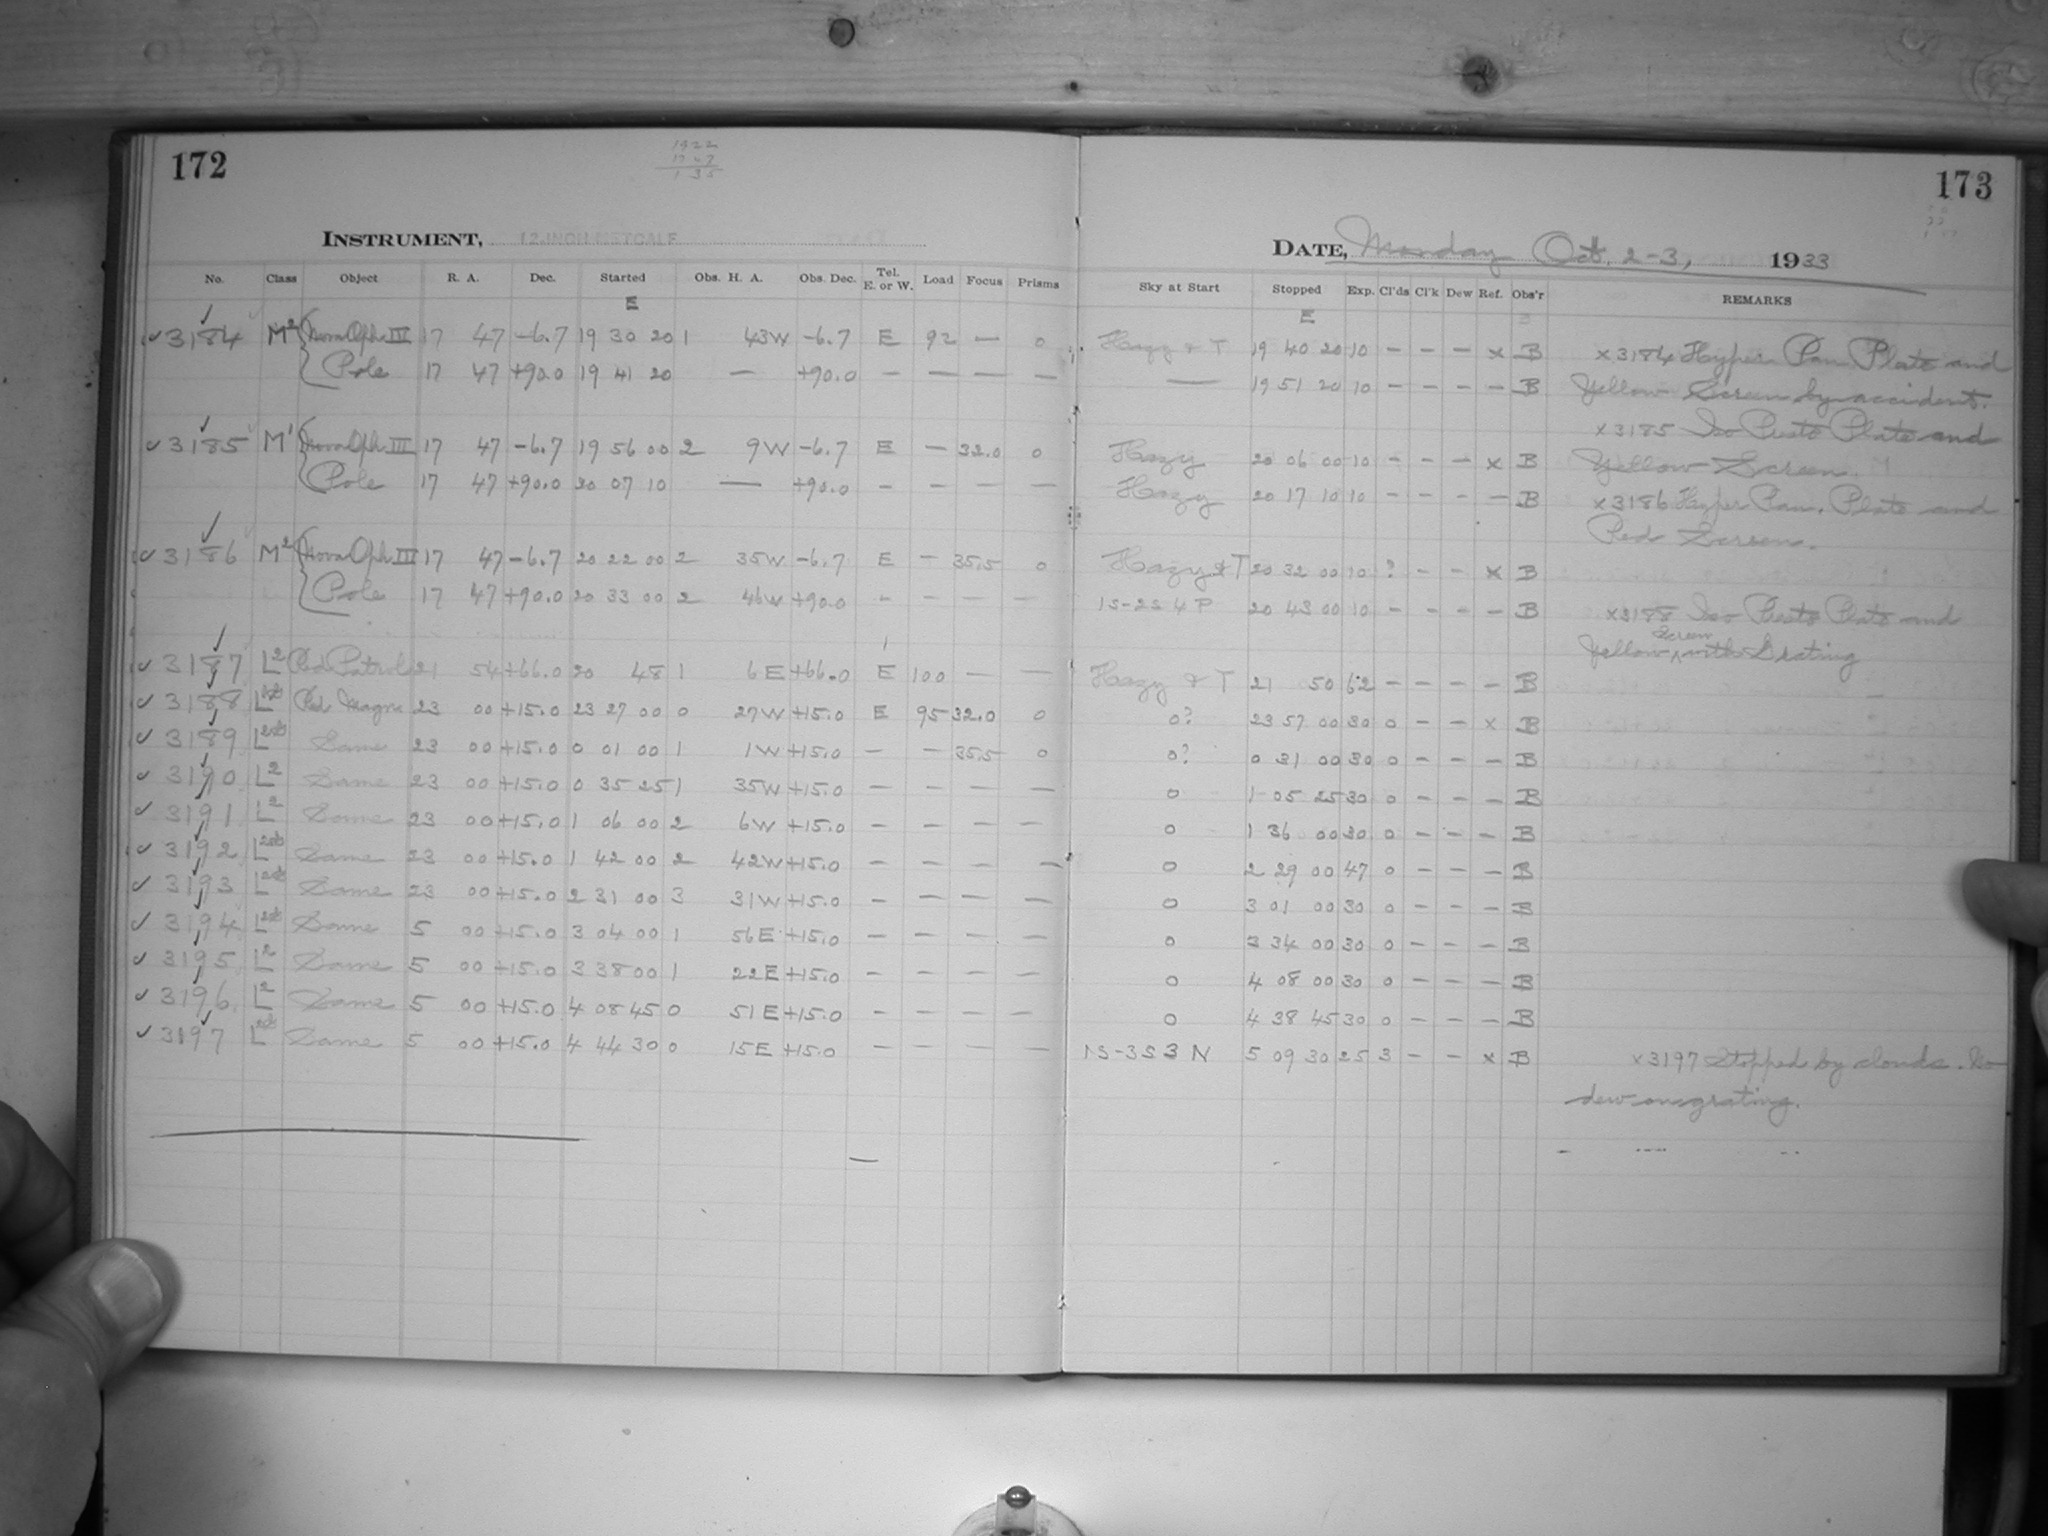 172
1922
1747
1 35
INSTRUMENT, 12-INCH METCALF
No. Class Object R. A. Dec. Started Obs. H. A. Obs. Dec. Tel. E. or W. Load Focus Prisms
E
✓ 3184 M² Nova Oph. III 17 47 -6.7 19 30 20 1 43W -6.7 E 92 — 0
Pole 17 47 +90.0 19 41 20 — +90.0 — — — —
✓ 3185 M¹ Nova Oph. III 17 47 -6.7 19 56 00 2 9W -6.7 E — 32.0 0
Pole 17 47 +90.0 20 07 10 — +90.0 — — — —
✓ 3186 M² Nova Oph III 17 47 -6.7 20 22 00 2 35W -6.7 E — 35.5 0
Pole 17 47 +90.0 20 33 00 2 46W +90.0 — — — —
✓ 3187 L² Patrol 21 54 +66.0 20 48 1 6E +66.0 E 100 — —
✓ 3188 Magn 23 00 +15.0 23 27 00 0 27W +15.0 E 95 32.0 0
✓ 3189 Same 23 00 +15.0 0 01 00 1 1W +15.0 — — 35.5 0
✓ 3190 L² Same 23 00 +15.0 0 35 25 1 35W +15.0 — — — —
✓ 3191 L² Same 23 00 +15.0 1 06 00 2 6W +15.0 — — — —
✓ 3192 Same 23 00 +15.0 1 42 00 2 42W +15.0 — — — —
✓ 3193 Same 23 00 +15.0 2 31 00 3 31W +15.0 — — — —
✓ 3194 Same 5 00 +15.0 3 04 00 1 56E +15.0 — — — —
✓ 3195 L² Same 5 00 +15.0 3 38 00 1 22E +15.0 — — — —
✓ 3196 L² Same 5 00 +15.0 4 08 45 0 51E +15.0 — — — —
✓ 3197 Same 5 00 +15.0 4 44 30 0 15E +15.0 — — — —
173
DATE, Monday Oct. 2-3, 1933
Sky at Start Stopped Exp. Cl'ds Cl'k Dew Ref. Obs'r REMARKS
E
Hazy & T 19 40 20 10 — — — x B x3184 Hyper Pan Plate and
— 19 51 20 10 — — — — B Yellow Screen by accident.
x3185 Iso Presto Plate and
Hazy 20 06 00 10 — — — x B Yellow Screen.
Hazy 20 17 10 10 — — — — B x3186 Hyper Pan. Plate and
Red Screen.
Hazy & T 20 32 00 10 ? — — x B
1S-2S 4 P 20 43 00 10 — — — — B x3188 Iso Presto Plate and
Yellow Screen with Grating
Hazy & T 21 50 62 — — — — B
0? 23 57 00 30 0 — — x B
0? 0 31 00 30 0 — — — B
0 1 05 25 30 0 — — — B
0 1 36 00 30 0 — — — B
0 2 29 00 47 0 — — — B
0 3 01 00 30 0 — — — B
0 3 34 00 30 0 — — — B
0 4 08 00 30 0 — — — B
0 4 38 45 30 0 — — — B
1S-3S 3 N 5 09 30 25 3 — — x B x3197 Stopped by clouds. No
dew on grating.